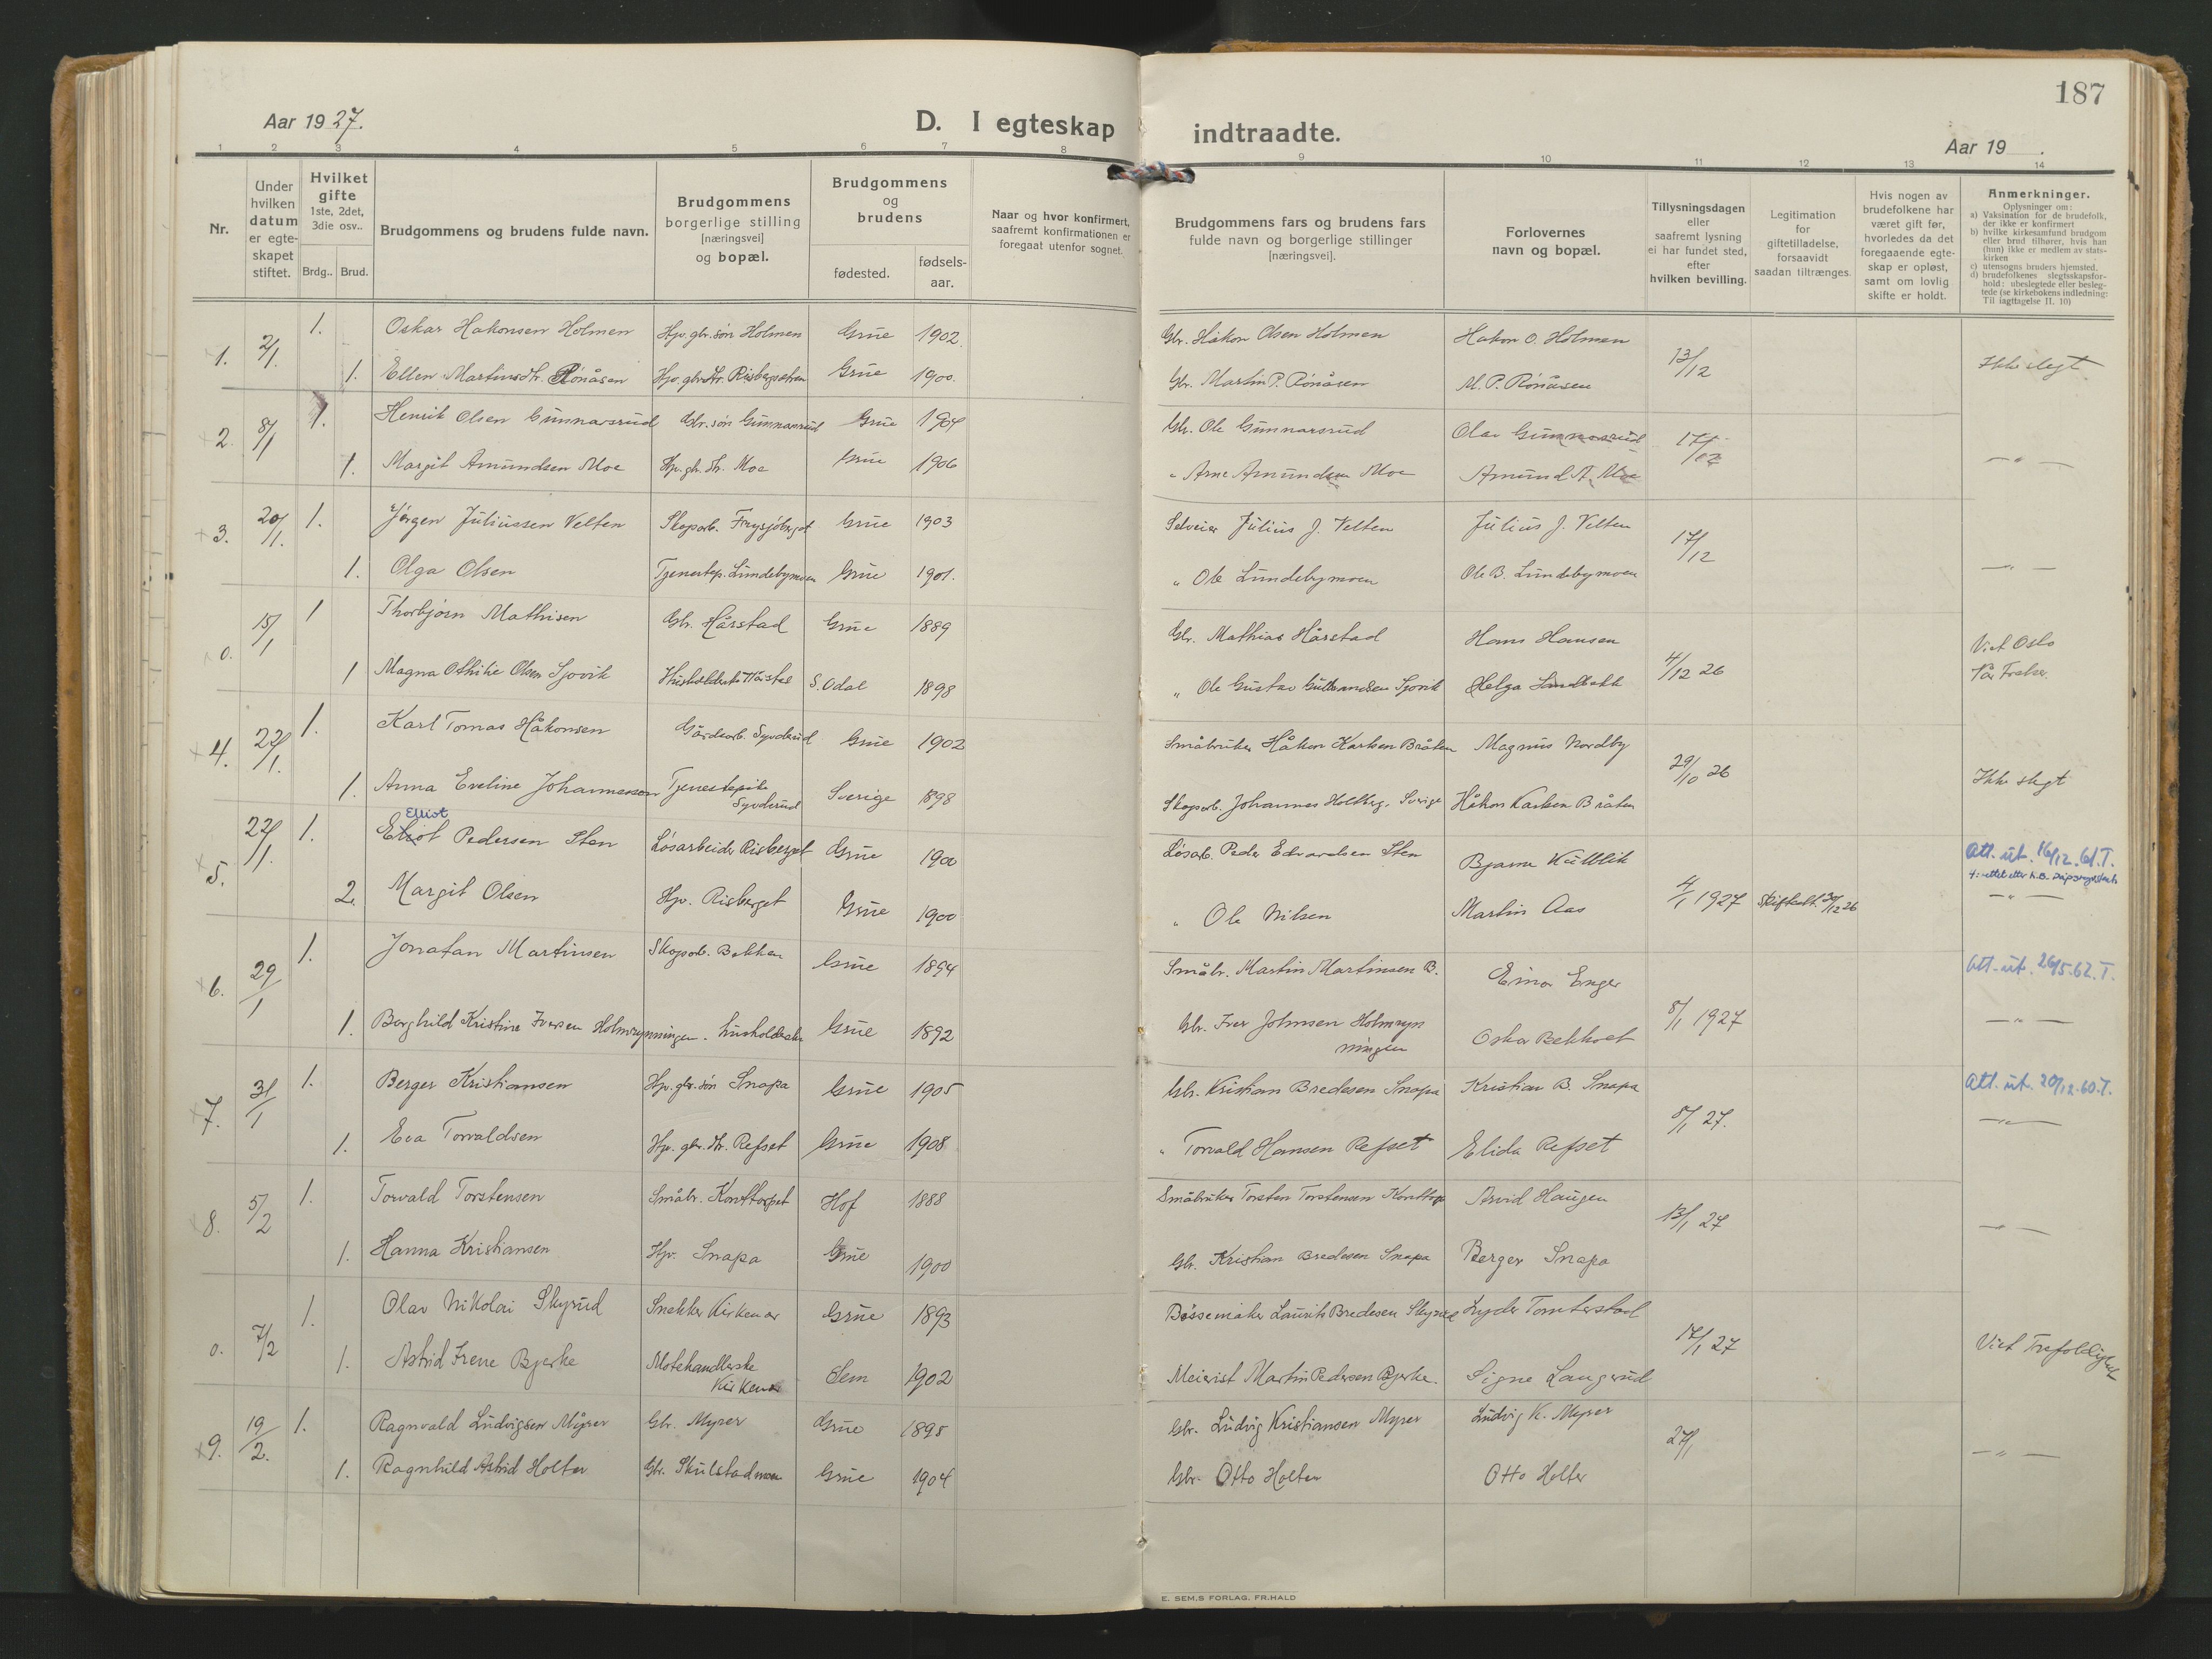 187
Aar 1927.
D. I egteskap indtraadte.
Aar 19 .
1 2 3 4 5 6 7 8 9 10 11 12 13 14
Nr.
Under hvilken datum er egteskapet stiftet.
Hvilket gifte 1ste, 2det, 3die osv..
Brdg.. Brud.
Brudgommens og brudens fulde navn.
Brudgommens borgerlige stilling [næringsvei] og bopæl.
Brudgommens og brudens
fødested.
fødsels-aar.
Naar og hvor konfirmert, saafremt konfirmationen er foregaat utenfor sognet.
Brudgommens fars og brudens fars fulde navn og borgerlige stillinger [næringsvei].
Forlovernes navn og bopæl.
Tillysningsdagen eller saafremt lysning ei har fundet sted, efter hvilken bevilling.
Legitimation for giftetilladelse, forsaavidt saadan tiltrænges.
Hvis nogen av brudefolkene har været gift før, hvorledes da det foregaaende egteskap er opløst, samt om lovlig skifte er holdt.
Anmerkninger.
Oplysninger om:
a) Vaksination for de brudefolk, der ikke er konfirmert
b) hvilke kirkesamfund brudgom eller brud tilhører, hvis han (hun) ikke er medlem av statskirken
c) utensogns bruders hjemsted.
d) brudefolkenes slegtsskapsforhold: ubeslegtede eller beslegtede (se kirkebokens indledning: Til iagttagelse II. 10)
1. 2/1. 1. Oskar Hakonsen Holmen Hjv. gbr. søn Holmen Grue 1902. Gbr. Håkon Olsen Holmen Hakon O. Holmen 13/12 Ikke slegt
1. Ellen Martinsdtr. Rönåsen Hjv. gbr. dtr. Risbergsætren Grue 1900. Gbr. Martin P. Rönåsen M. P. Rönåsen
2. 8/1 1. Henrik Olsen Gunnarsrud Gbr. søn Gunnarsrud Grue 1904 Gbr. Ole Gunnarsrud Olav Gunnarsrud 17/12 — " —
1. Margit Amundsen Moe Hjv. gbr. dtr. Moe Grue 1906 " Arne Amundsen Moe Amund A. Moe
3. 20/1. 1. Jørgen Juliussen Velten Skogsarb. Frysjöberget Grue 1903 Selveier Julius J. Velten Julius J. Velten 17/12 — " —
1. Olga Olsen Tjenestep. Lundebymoen Grue 1901. " Ole Lundebymoen Ole B. Lundebymoen
0. 15/1 1 Thorbjørn Mathisen Gbr. Hårstad Grue 1889 Gbr. Mathias Hårstad Hans Hansen 4/12 26 Viet Oslo
1 Magna Othilie Olsen Sjovik S. Odal 1898 " Ole Gustav Gulbrandsen Sjovik Helga Vår Frelser.
4. 22/1. 1. Karl Tomas Håkonsen Gårdsarb. Syvderud Grue 1902 Småbruker Håkon Karlsen Bråten Magnus Nordby 29/10 26 Ikke slegt
1. Anna Eveline Johannesson Tjenestepike Syvderud Sverige 1898 Skogsarb. Johannes Holtberg, Sverige Håkon Karlsen Bråten
Elliot
5. 22/1. 1. Eliot Pedersen Sten Løsarbeider Risberget Grue 1900 Løsarb. Peder Edvardsen Sten Bjarne Kullblik Att. ut. 16/12.61.T.
2. Margit Olsen Hjv. Risberget Grue 1900 " Ole Nilsen Martin Aas 4/1 1927 30/12 26 — " —
6. 29/1 1. Jonatan Martinsen Skogsarb. Bekken Grue 1894 Småbr. Martin Martinsen B. Einar Enger 8/1 1927 Att. ut. 26/5-62. T.
1. Borghild Kristine Iversen Holmrynningen. husholderske Grue 1892 Gbr. Iver Johnsen Holmrynningen Oskar Bekkholt — " —
7. 31/1 1. Berger Kristiansen Hjv. gbr. søn Snapa Grue 1905 Gbr. Kristian Bredesen Snapa Kristian B. Snapa 8/1 27. Att. ut. 20/12.60.T.
1. Eva Torvaldsen Hjv. gbr. dtr. Refset Grue 1908 " Torvald Hansen Refset Elida Refset — " —
8. 5/2 1. Torvald Torstensen Småbr. Konttorpet Hof 1888 Småbruker Torsten Torstensen Arvid Haugen 13/1 27 — " —
1. Hanna Kristiansen Hjv. Snapa Grue 1900 Gbr. Kristian Bredesen Snapa Berger Snapa
0. 7/2 1. Olav Nikolai Skyrud Snekker Kirkenær Grue 1893 Bøssemaker Laurits Bredesen Skyrud Lyder Tomterstad 17/1 27 Viet Trefoldighet
1. Astrid Irene Bjerke Motehandlerske Kirkenær Sem 1902 Meierist Martin Pedersen Bjerke. Signe Langerud
9. 19/2. 1. Ragnvald Ludvigsen Myrer Gbr. Myrer Grue 1895 Gbr. Ludvig Kristiansen Myrer Ludvig K. Myrer 27/1 — " —
1. Ragnhild Astrid Holter Gbr. Skulstadmoen Grue 1904 Gbr. Otto Holter Otto Holter
E. SEM,S FORLAG, FR.HALD